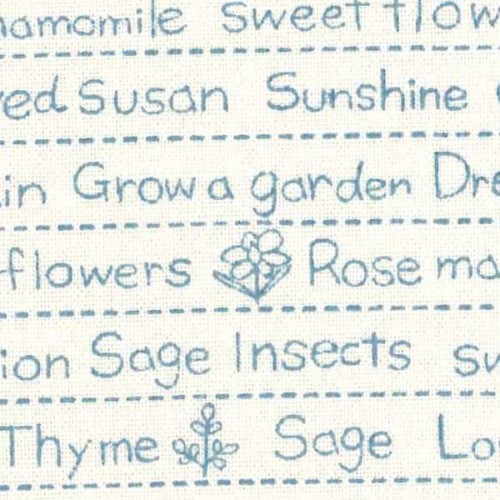 hamomile sweet flow
red Susan Sunshine
in Grow a garden Dre
flowers Rose ma
ion Sage Insects sw
Thyme Sage Lo